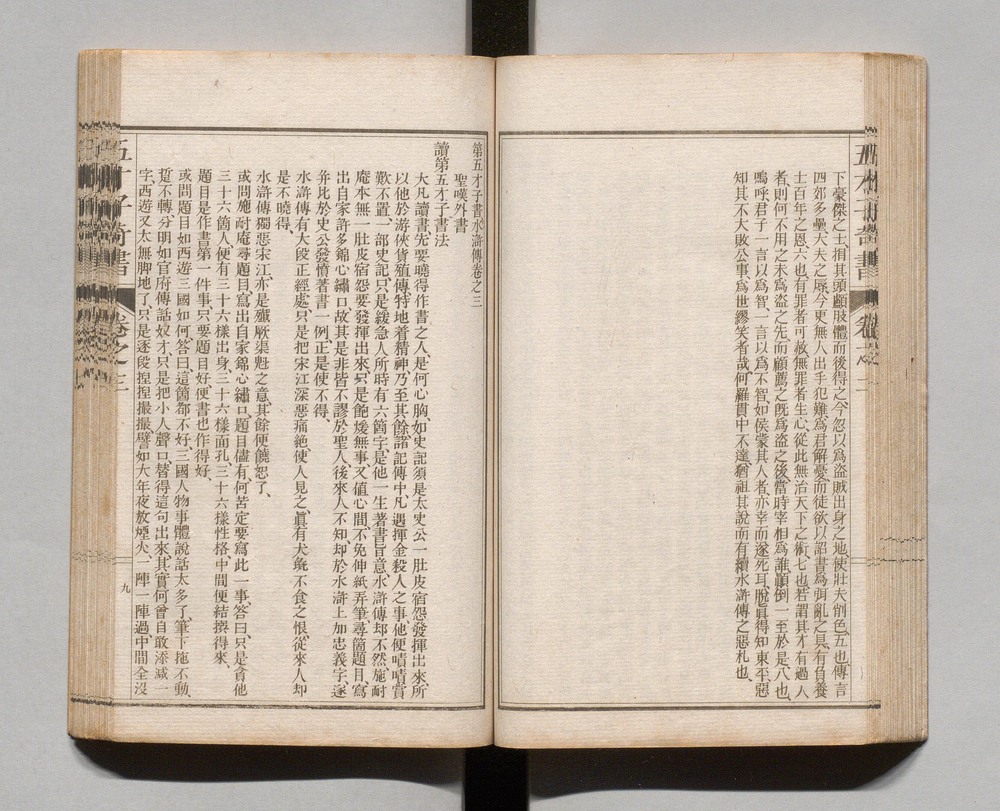 下豪傑之士捐其頭顱肢體而後得之今忽以爲盜賊出身之地使壯夫削色五也傳言
四郊多壘大夫之辱今更無人出手犯難爲君解憂而徒欲以詔書爲弭亂之具有負養
士百年之恩六也有罪者可赦無罪者生心從此無治天下之術七也若謂其才有過人
者則何不用之未爲盜之先而顧薦之旣爲盜之後當時宰相爲誰顚倒一至於是八也
嗚呼君子一言以爲智一言以爲不智如侯蒙其人者亦幸而遂死耳脫眞得知東平惡
知其不大敗公事爲世繆笑者哉何羅貫中不達猶祖其說而有續水滸傳之惡札也
第五才子書水滸傳卷之三
聖嘆外書
讀第五才子書法
大凡讀書先要曉得作書之人是何心胸如史記須是太史公一肚皮宿怨發揮出來所
以他於游俠貨殖傳特地着精神乃至其餘諸記傳中凡遇揮金殺人之事他便嘖嘖賞
歎不置一部史記只是緩急人所時有六箇字是他一生著書旨意水滸傳却不然施耐
庵本無一肚皮宿怨要發揮出來只是飽煖無事又値心閒不免伸紙弄筆尋箇題目寫
出自家許多錦心繡口故其是非皆不謬於聖人後來人不知却於水滸上加忠義字遂
幷比於史公發憤著書一例正是使不得
水滸傳有大段正經處只是把宋江深惡痛絕使人見之眞有犬彘不食之恨從來人却
是不曉得
水滸傳獨惡宋江亦是殲厥渠魁之意其餘便饒恕了
或問施耐庵尋題目寫出自家錦心繡口題目儘有何苦定要寫此一事答曰只是貪他
三十六箇人便有三十六樣出身三十六樣面孔三十六樣性格中間便結撰得來
題目是作書第一件事只要題目好便書也作得好
或問題目如西遊三國如何答曰這箇都不好三國人物事體說話太多了筆下拖不動
踅不轉分明如官府傳話奴才只是把小人聲口替得這句出來其實何曾自敢添減一
字西遊又太無脚地了只是逐段捏捏撮撮譬如大年夜放煙火一陣一陣過中間全沒
卷之三
九